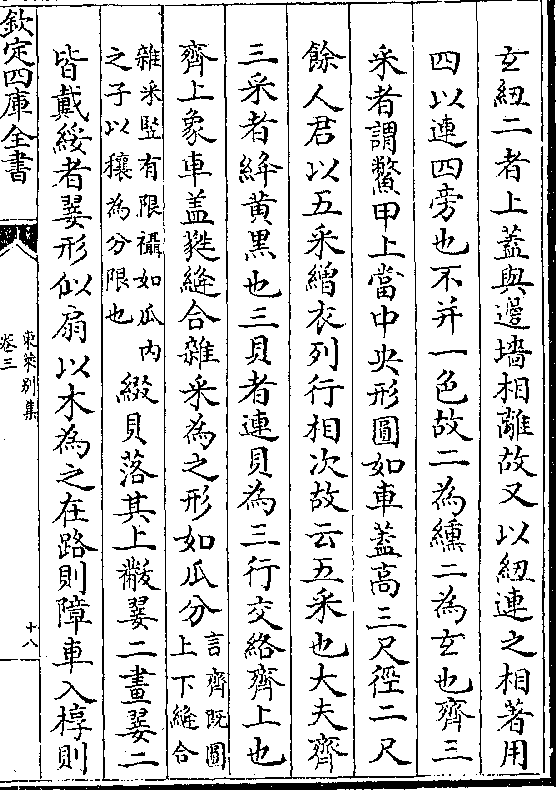 玄紐二者上蓋與邊墻相離故又以紐連之相著用
四以連四旁也不并一色故二為纁二為玄也齊三
采者謂鱉甲上當中央形圓如車蓋高三尺徑二尺
餘人君以五采繒衣列行相次故云五采也大夫齊
三采者絳黄黑也三貝者連貝為三行交絡齊上也
齊上象車蓋蕤縫合雜采為之形如瓜分言齊既圓上下縫合
雜采竪有限襵如瓜内之子以穰為分限也綴貝落其上黻翣二畫翣二
皆戴綏者翣形似扇以木為之在路則障車入椁則
欽定四庫全書
東萊别集
卷三
十八